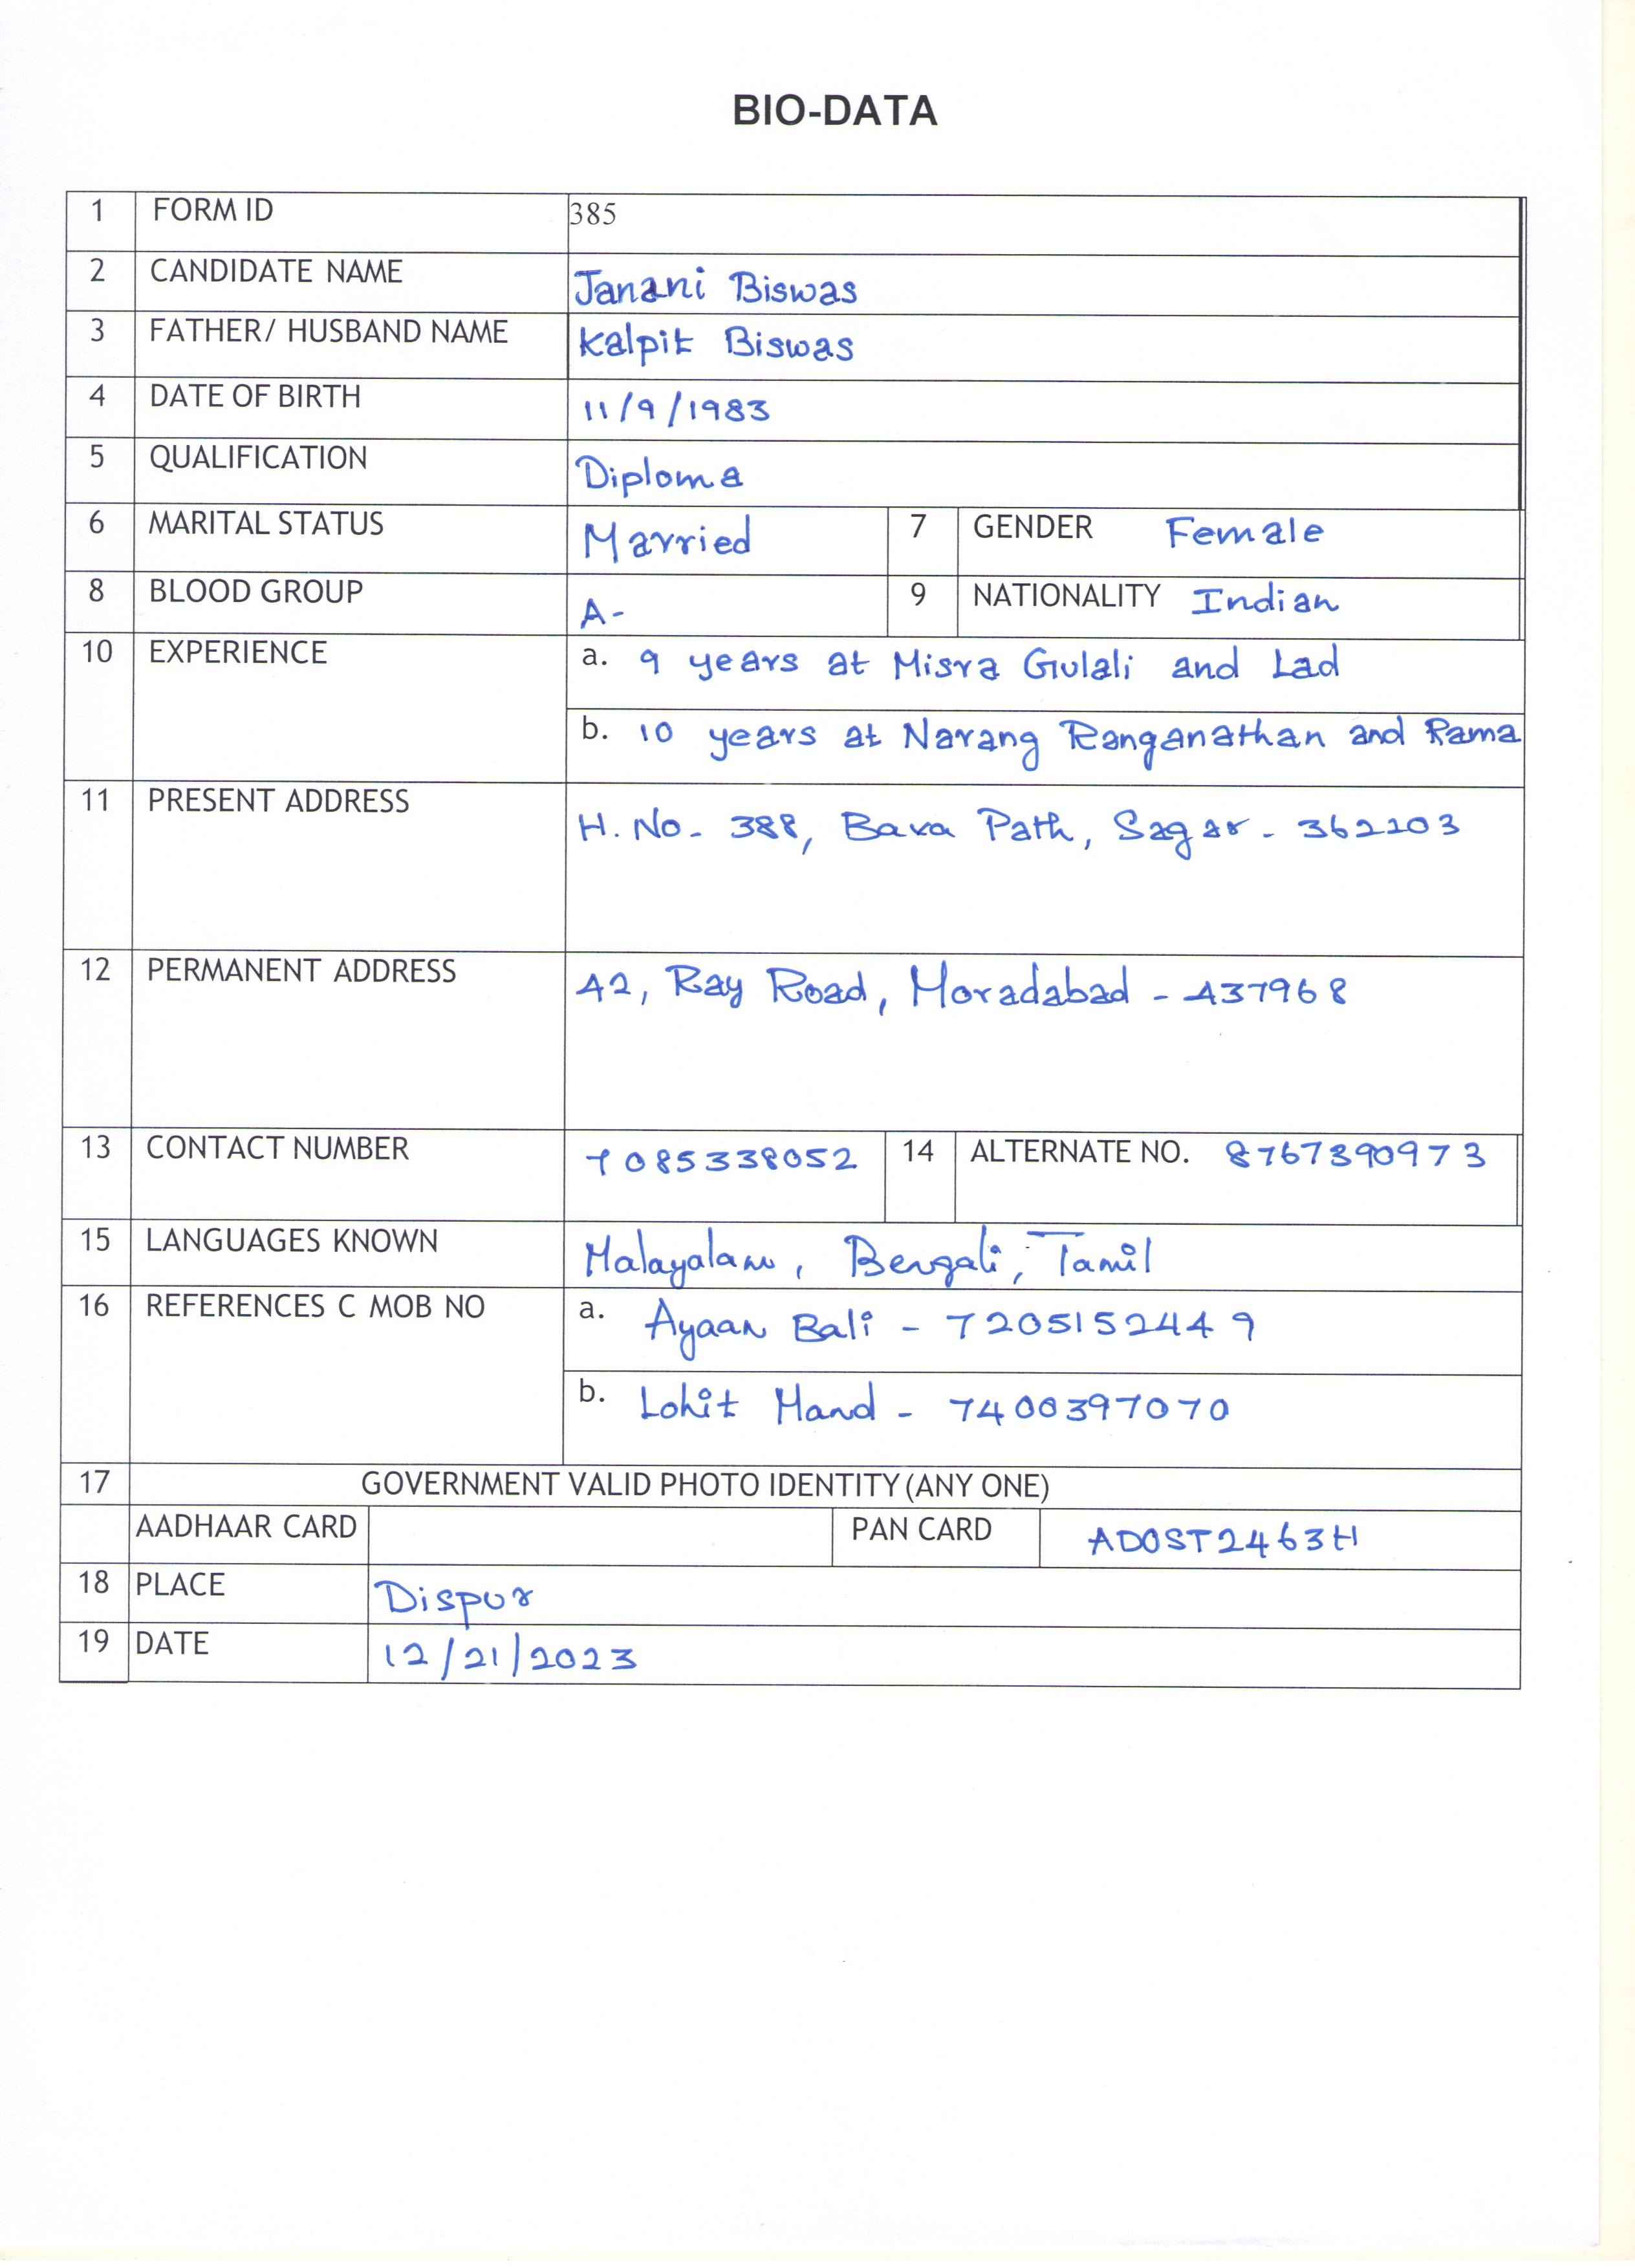 BIO-DATA
1 FORM ID 385
2 CANDIDATE NAME Janani Biswas
3 FATHER/ HUSBAND NAME Kalpit Biswas
4 DATE OF BIRTH 11/9/1983
5 QUALIFICATION Diploma
6 MARITAL STATUS Married 7 GENDER Female
8 BLOOD GROUP A- 9 NATIONALITY Indian
10 EXPERIENCE a. 9 years at Misra Gulali and Lad
b. 10 years at Narang Ranganathan and Rama
11 PRESENT ADDRESS H. No- 388, Bava Path, Sagar - 362203
12 PERMANENT ADDRESS 42, Ray Road, Moradabad - 437968
13 CONTACT NUMBER 7085338052 14 ALTERNATE NO. 8767390973
15 LANGUAGES KNOWN Malayalam, Bengali, Tamil
16 REFERENCES C MOB NO a. Ayaan Bali - 7205152449
b. Lohit Mand - 7400397070
17 GOVERNMENT VALID PHOTO IDENTITY (ANY ONE)
AADHAAR CARD PAN CARD ADOST2463H
18 PLACE Dispur
19 DATE 12/21/2023